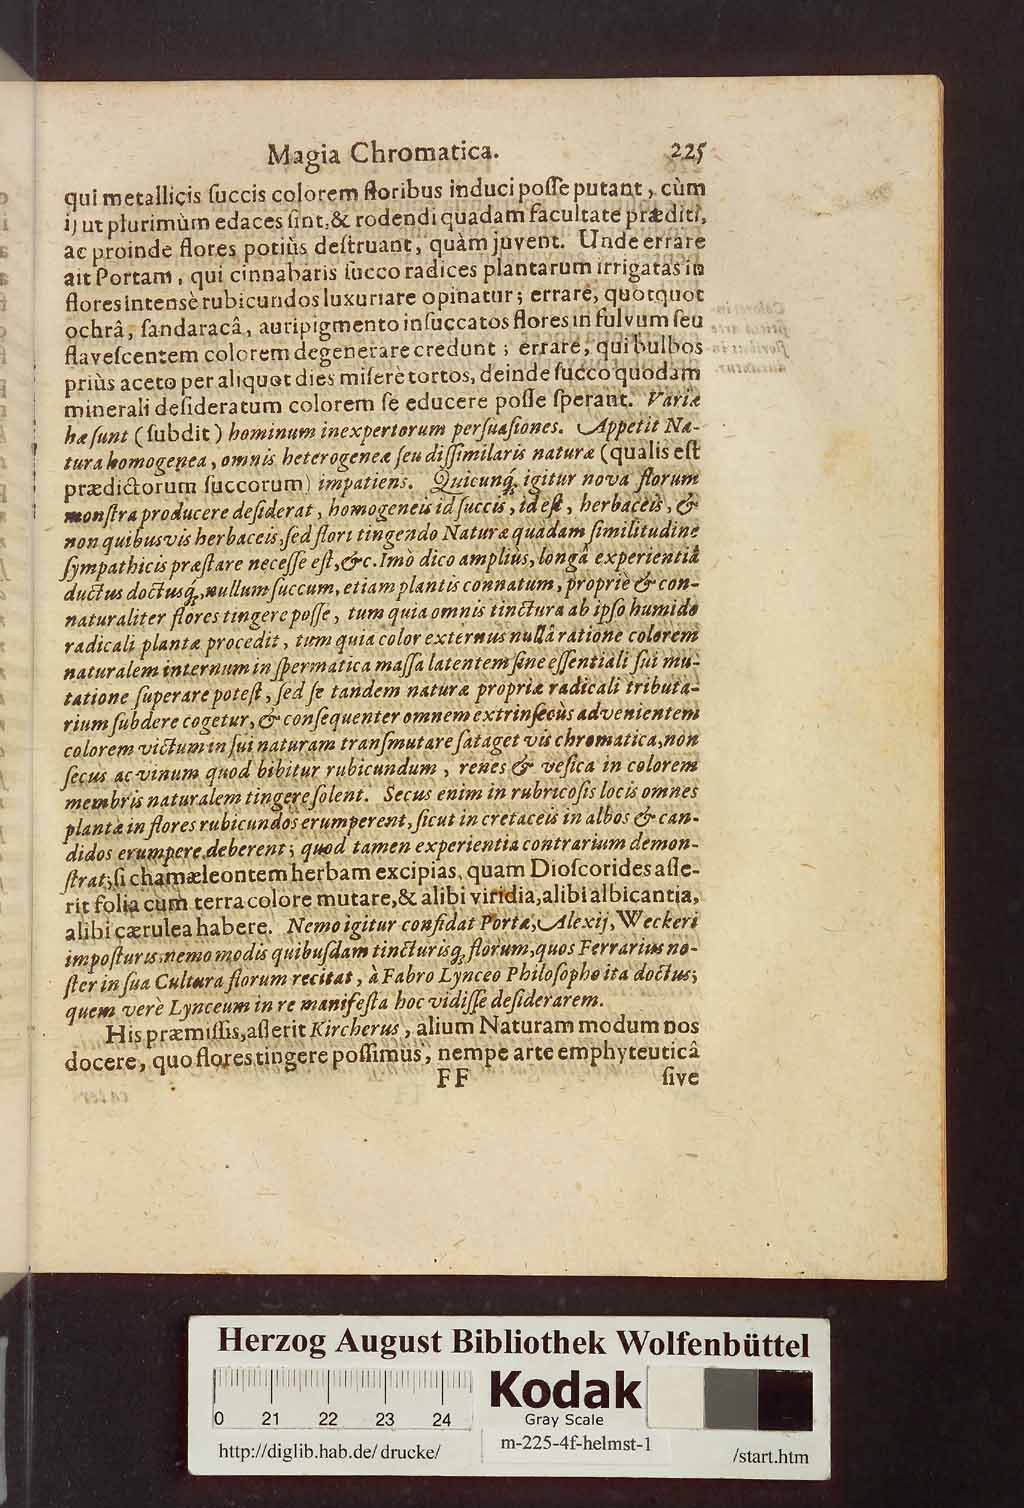 Magia Chromatica. 225
qui metallicis ſuccis colorem floribus induci poſſe putant, cùm
ij ut plurimùm edaces ſint, & rodendi quadam facultate præditi,
ac proinde flores potiùs deſtruant, quàm juvent. Unde errare
ait Portam, qui cinnabaris ſucco radices plantarum irrigatas in
flores intensè rubicundos luxuriare opinatur; errare, quotquot
ochrâ, ſandaracâ, auripigmento inſuccatos flores in fulvum ſeu
flaveſcentem colorem degenerare credunt; errare, qui bulbos
priùs aceto per aliquot dies miſerè tortos, deinde ſucco quodam
minerali deſideratum colorem ſe educere poſſe ſperant. Variæ
hæ ſunt (ſubdit) hominum inexpertorum perſuaſiones. Appetit Na-
tura homogenea, omnis heterogeneæ ſeu diſſimilaris naturæ (qualis eſt
prædictorum ſuccorum) impatiens. Quicunq; igitur nova florum
monſtra producere deſiderat, homogeneis id ſuccis, id eſt, herbaceis, &
non quibusvis herbaceis, ſed flori tingendo Naturæ quâdam ſimilitudine
ſympathicis præſtare neceſſe eſt, &c. Imò dico ampliùs, longâ experientiâ
ductus doctusq;, nullum ſuccum, etiam plantis connatum, propriè & con-
naturaliter flores tingere poſſe, tum quia omnis tinctura ab ipſo humido
radicali plantæ procedit, tum quia color externus nullâ ratione colorem
naturalem internum in ſpermatica maſſa latentem ſine eſſentiali ſui mu-
tatione ſuperare poteſt, ſed ſe tandem naturæ propriæ radicali tributa-
rium ſubdere cogetur, & conſequenter omnem extrinſecùs advenientem
colorem victum in ſui naturam tranſmutare ſataget vis chromatica, non
ſecus ac vinum quod bibitur rubicundum, renes & veſica in colorem
membris naturalem tingere ſolent. Secus enim in rubricoſis locis omnes
plantæ in flores rubicundos erumperent, ſicut in cretaceis in albos & can-
didos erumpere deberent; quod tamen experientia contrarium demon-
ſtrat; ſi chamæleontem herbam excipias, quam Dioſcorides aſſe-
rit folia cum terra colore mutare, & alibi viridia, alibi albicantia,
alibi cærulea habere. Nemo igitur confidat Portæ, Alexij, Weckeri
impoſturis, nemo modis quibuſdam tincturisq; florum, quos Ferrarius no-
ſter in ſua Cultura florum recitat, à Fabro Lynceo Philoſopho ita doctus;
quem verè Lynceum in re manifeſta hoc vidiſſe deſiderarem.
His præmiſſis, aſſerit Kircherus, alium Naturam modum nos
docere, quo flores tingere poſſimus, nempe arte emphyteuticâ
FF ſive
Herzog August Bibliothek Wolfenbüttel
0 21 22 23 24
Kodak
Gray Scale
http://diglib.hab.de/drucke/
m-225-4f-helmst-1
/start.htm